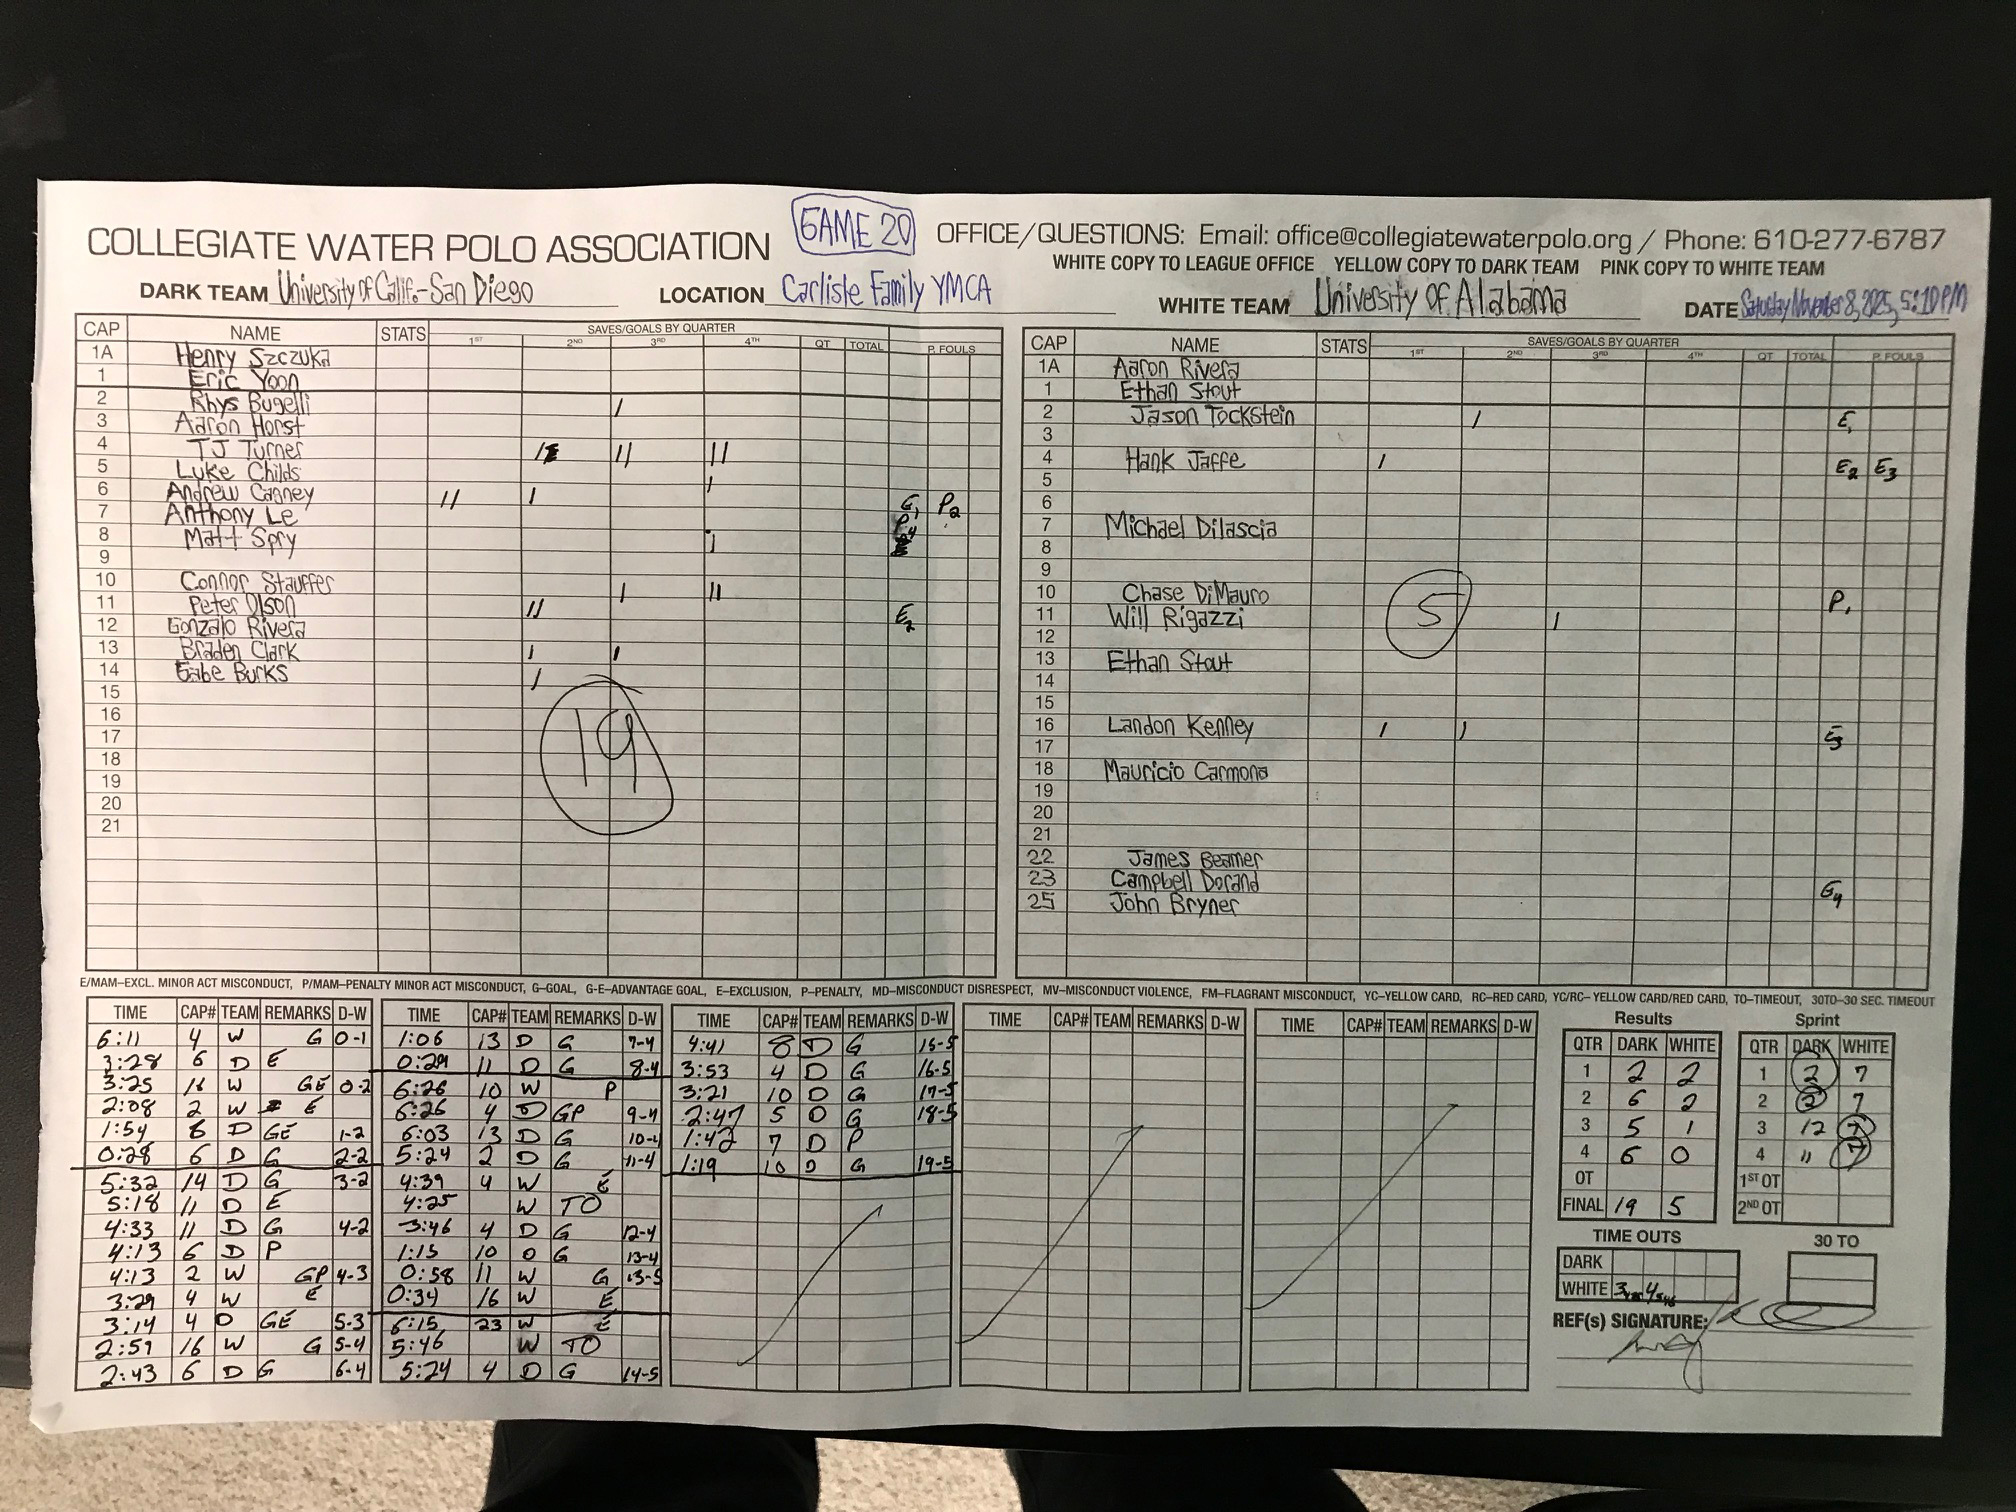 GAME 20
COLLEGIATE WATER POLO ASSOCIATION
OFFICE/QUESTIONS: Email: office@collegiatewaterpolo.org / Phone: 610-277-6787
WHITE COPY TO LEAGUE OFFICE YELLOW COPY TO DARK TEAM PINK COPY TO WHITE TEAM
DARK TEAM University of Calif.-San Diego LOCATION Carlisle Family YMCA
WHITE TEAM University of Alabama DATE Saturday November 8, 2025, 5:10 PM
CAP NAME STATS SAVES/GOALS BY QUARTER
1ST 2ND 3RD 4TH QT TOTAL P. FOULS
1A Henry Szczuka
1 Eric Yoon
2 Rhys Bugelli /
3 Aaron Horst
4 TJ Turner / // //
5 Luke Childs /
6 Andrew Cagney // / G1 P2
7 Anthony Le P4
8 Matt Spry /
9
10 Connor Stauffer / //
11 Peter Olson // E2
12 Gonzalo Rivera
13 Braden Clark / /
14 Gabe Burks /
15
16
17
18
19
20
21
19
CAP NAME STATS SAVES/GOALS BY QUARTER
1ST 2ND 3RD 4TH QT TOTAL P. FOULS
1A Aaron Rivera
1 Ethan Stout
2 Jason Tockstein / E1
3
4 Hank Jaffe / E2 E3
5
6
7 Michael Dilascia
8
9
10 Chase DiMauro P1
11 Will Rigazzi /
12
13 Ethan Stout
14
15
16 Landon Kenney / / E3
17
18 Mauricio Carmona
19
20
21
22 James Beamer
23 Campbell Dorand G4
25 John Bryner
5
E/MAM–EXCL. MINOR ACT MISCONDUCT, P/MAM–PENALTY MINOR ACT MISCONDUCT, G–GOAL, G-E–ADVANTAGE GOAL, E–EXCLUSION, P–PENALTY, MD–MISCONDUCT DISRESPECT, MV–MISCONDUCT VIOLENCE, FM–FLAGRANT MISCONDUCT, YC–YELLOW CARD, RC–RED CARD, YC/RC– YELLOW CARD/RED CARD, TO–TIMEOUT, 30TO–30 SEC. TIMEOUT
TIME CAP# TEAM REMARKS D-W
6:11 4 W G 0-1
3:28 6 D E
3:25 16 W GE 0-2
2:08 2 W E
1:54 6 D GE 1-2
0:28 6 D G 2-2
5:32 14 D G 3-2
5:18 11 D E
4:33 11 D G 4-2
4:13 6 D P
4:13 2 W GP 4-3
3:29 4 W E
3:14 4 D GE 5-3
2:59 16 W G 5-4
2:43 6 D G 6-4
TIME CAP# TEAM REMARKS D-W
1:06 13 D G 7-4
0:29 11 D G 8-4
6:26 10 W P
6:26 4 D GP 9-4
6:03 13 D G 10-4
5:24 2 D G 11-4
4:39 4 W E
4:25 W TO
3:46 4 D G 12-4
1:15 10 D G 13-4
0:58 11 W G 13-5
0:34 16 W E
6:15 23 W E
5:46 W TO
5:24 4 D G 14-5
TIME CAP# TEAM REMARKS D-W
4:41 8 D G 15-5
3:53 4 D G 16-5
3:21 10 D G 17-5
2:47 5 D G 18-5
1:42 7 D P
1:19 10 D G 19-5
TIME CAP# TEAM REMARKS D-W
TIME CAP# TEAM REMARKS D-W
Results
QTR DARK WHITE
1 2 2
2 6 2
3 5 1
4 6 0
OT
FINAL 19 5
Sprint
QTR DARK WHITE
1 2 7
2 2 7
3 12 7
4 11 7
1ST OT
2ND OT
TIME OUTS
DARK
WHITE 3 4:25 4 5:46
30 TO
REF(s) SIGNATURE: